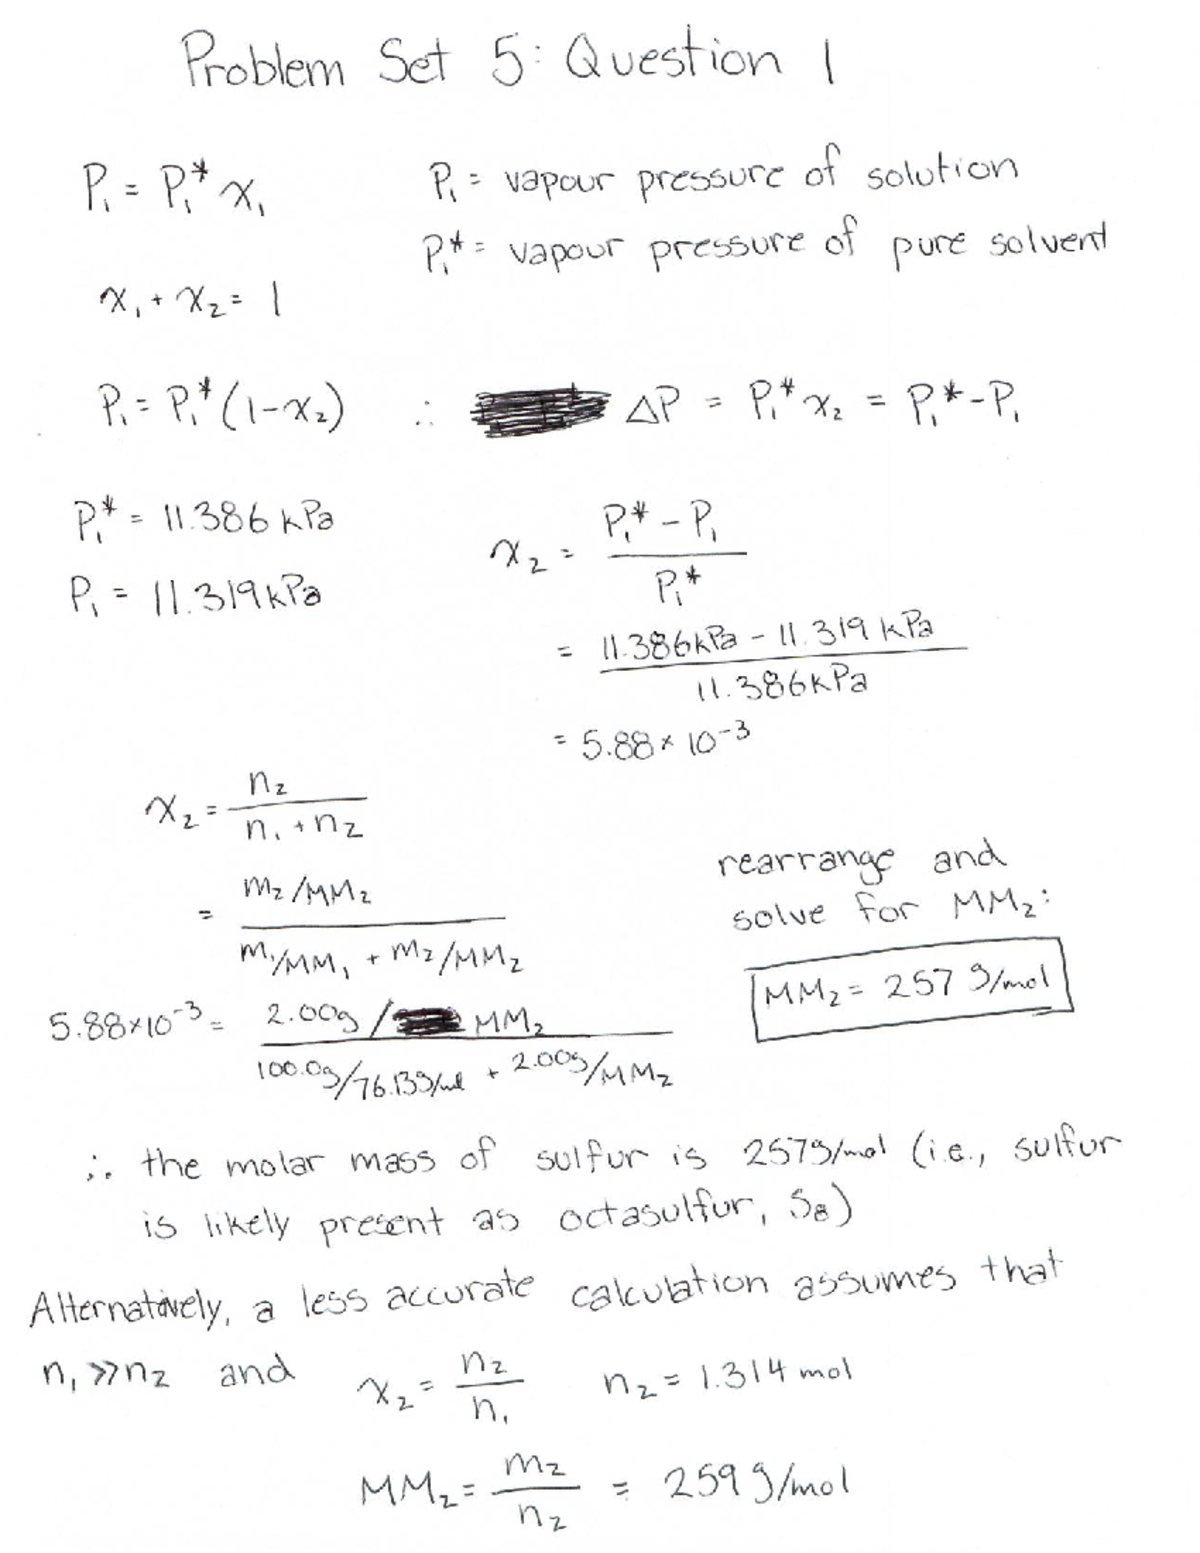 Problem Set 5: Question 1
P₁ = P₁* x₁
P₁ = vapour pressure of solution
P₁* = vapour pressure of pure solvent
x₁ + x₂ = 1
P₁ = P₁* (1-x₂) ∴ ΔP = P₁* x₂ = P₁* - P₁
P₁* = 11.386 kPa
P₁ = 11.319 kPa
x₂ = (P₁* - P₁) / P₁*
= (11.386 kPa - 11.319 kPa) / 11.386 kPa
= 5.88 × 10⁻³
x₂ = n₂ / (n₁ + n₂)
= (m₂/MM₂) / (m₁/MM₁ + m₂/MM₂)
5.88×10⁻³ = (2.00g / MM₂) / (100.0g/76.13g/mol + 2.00g/MM₂)
rearrange and
solve for MM₂:
MM₂ = 257 g/mol
∴ the molar mass of sulfur is 257g/mol (i.e., sulfur
is likely present as octasulfur, S₈)
Alternatively, a less accurate calculation assumes that
n₁ >> n₂ and x₂ = n₂ / n₁ n₂ = 1.314 mol
MM₂ = m₂ / n₂ = 259 g/mol